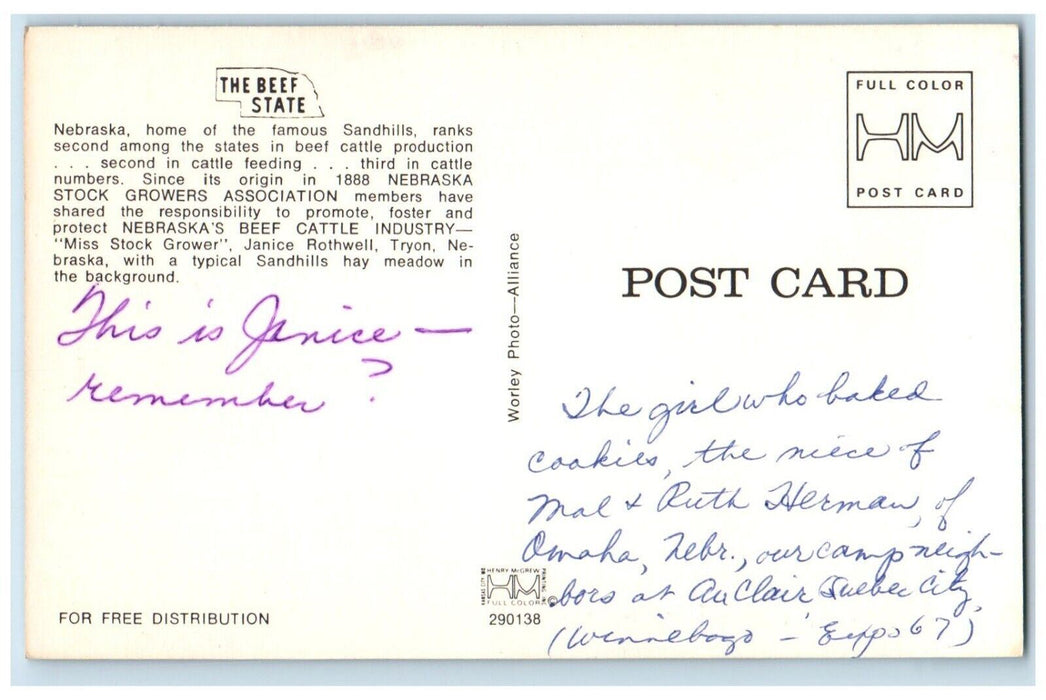 THE BEEF
STATE
Nebraska, home of the famous Sandhills, ranks
second among the states in beef cattle production
. . . second in cattle feeding . . . third in cattle
numbers. Since its origin in 1888 NEBRASKA
STOCK GROWERS ASSOCIATION members have
shared the responsibility to promote, foster and
protect NEBRASKA'S BEEF CATTLE INDUSTRY—
"Miss Stock Grower", Janice Rothwell, Tryon, Ne-
braska, with a typical Sandhills hay meadow in
the background.
This is Janice —
remember ?
FOR FREE DISTRIBUTION
Worley Photo—Alliance
HENRY McGREW
PRINTING
KANSAS CITY
HM
FULL COLOR
290138
FULL COLOR
HM
POST CARD
POST CARD
The girl who baked
cookies, the niece of
Mal & Ruth Herman, of
Omaha, Nebr., our camp neigh-
bors at AuClair Quebec City,
(Winnebago - Expo 67)